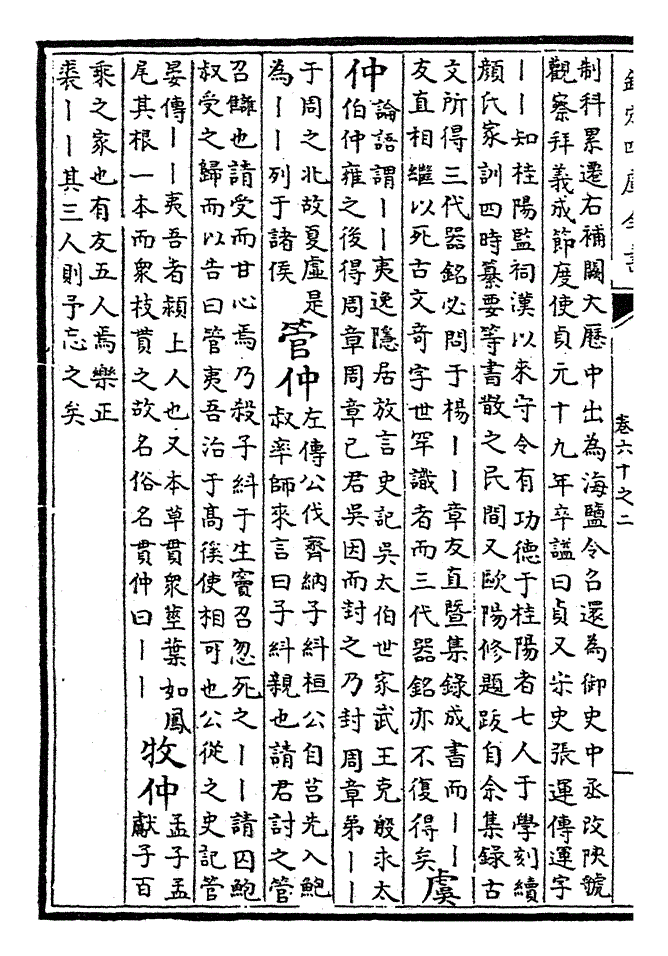 欽定四庫全書
卷六十之二
制科累遷右補闕大厯中出為海鹽令召還為御史中丞改陜虢
觀察拜義成節度使貞元十九年卒諡曰貞又宋史張運傳運字
丨丨知桂陽監祠漢以來守令有功德于桂陽者七人于學刻續
顔氏家訓四時纂要等書散之民間又歐陽修題跋自余集錄古
文所得三代器銘必問于楊丨丨章友直暨集錄成書而丨丨
友直相繼以死古文奇字世罕識者而三代器銘亦不復得矣
虞
仲
論語謂丨丨夷逸隱居放言史記吳太伯世家武王克殷求太
伯仲雍之後得周章周章已君吳因而封之乃封周章弟丨丨
于周之北故夏虛是
為丨丨列于諸侯
管仲
左傳公伐齊納子糾桓公自莒先入鮑
叔率師來言曰子糾親也請君討之管
召讎也請受而甘心焉乃殺子糾于生竇召忽死之丨丨請囚鮑
叔受之歸而以告曰管夷吾治于高傒使相可也公從之史記管
晏傳丨丨夷吾者潁上人也又本草貫衆莖葉如鳳
尾其根一本而衆枝貫之故名俗名貫仲曰丨丨
牧仲
孟子孟
獻子百
乘之家也有友五人焉樂正
裘丨丨其三人則予忘之矣